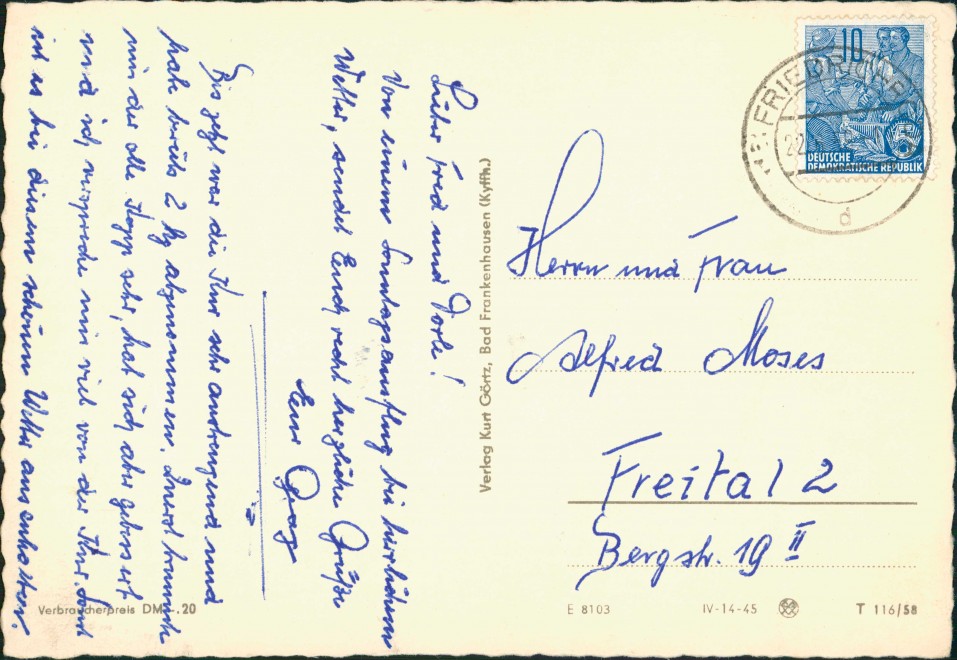 Lieber Fred und Dorle!
Von einem Sonntagsausflug bei herrlichem
Wetter, sendet Euch recht herzliche Grüße
Euer
Bis jetzt war die Kur sehr anstrengend und
habe bereits 2 kg abgenommen. Zuerst
mir der alte sehr, hat sich aber gebessert
und ich verspreche mir viel von der Kur. Sonst
ist es bei diesem schönen Wetter auszuhalten.
Verlag Kurt Görtz, Bad Frankenhausen (Kyffh.)
10
DEUTSCHE
DEMOKRATISCHE REPUBLIK
22
d
Herrn und Frau
Alfred Moses
Freital 2
Bergstr. 19 II
Verbraucherpreis DM -.20
E 8103 IV-14-45 T 116/58